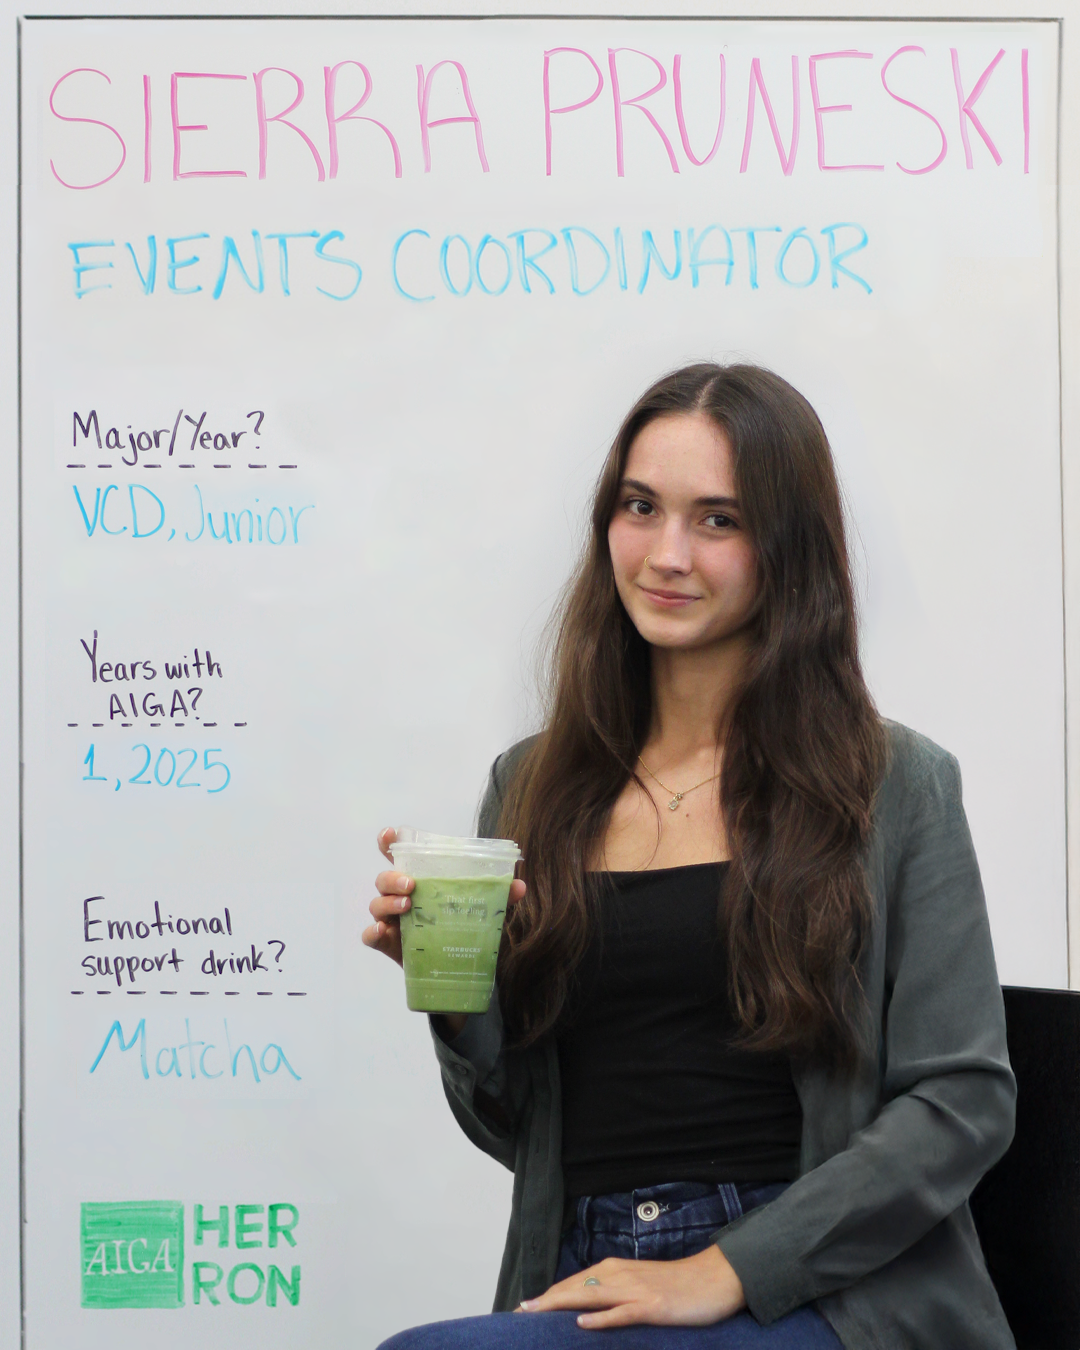 SIERRA PRUNESKI
EVENTS COORDINATOR
Major/Year?
VCD, Junior
Years with
AIGA?
1, 2025
Emotional
support drink?
Matcha
That first
sip feeling
STARBUCKS
REWARDS
AIGA
HER
RON